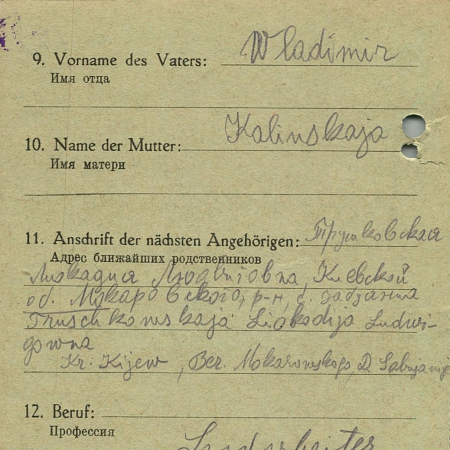 9. Vorname des Vaters: Wladimir
Имя отца
10. Name der Mutter: Kalinskaja
Имя матери
11. Anschrift der nächsten Angehörigen: Трушковская
Адрес ближайших родственников
Лиокадия Людвиговна, Киевской
об. Макаровского, р-н,
Truschkowskaja Liokadija Ludwi-
gowna
Kr. Kijew, Ber. Makarowskogo, D.
12. Beruf:
Профессия
Landarbeiter